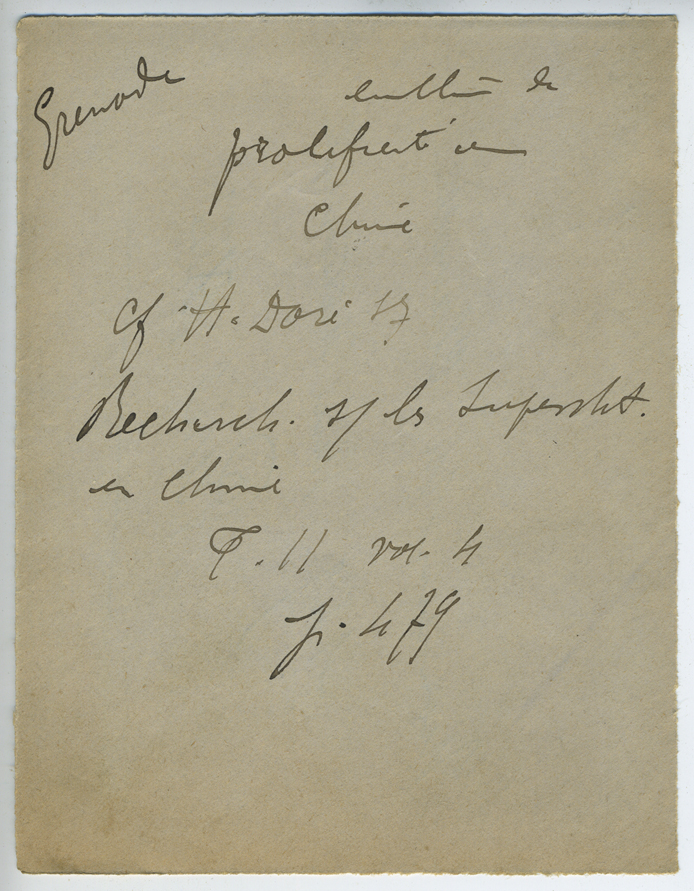 Grenade
emblème de
prolificité en
Chine
cf H. Doré SJ
Recherch. s/ les Superstit.
en Chine
T. II vol. 4
p. 479